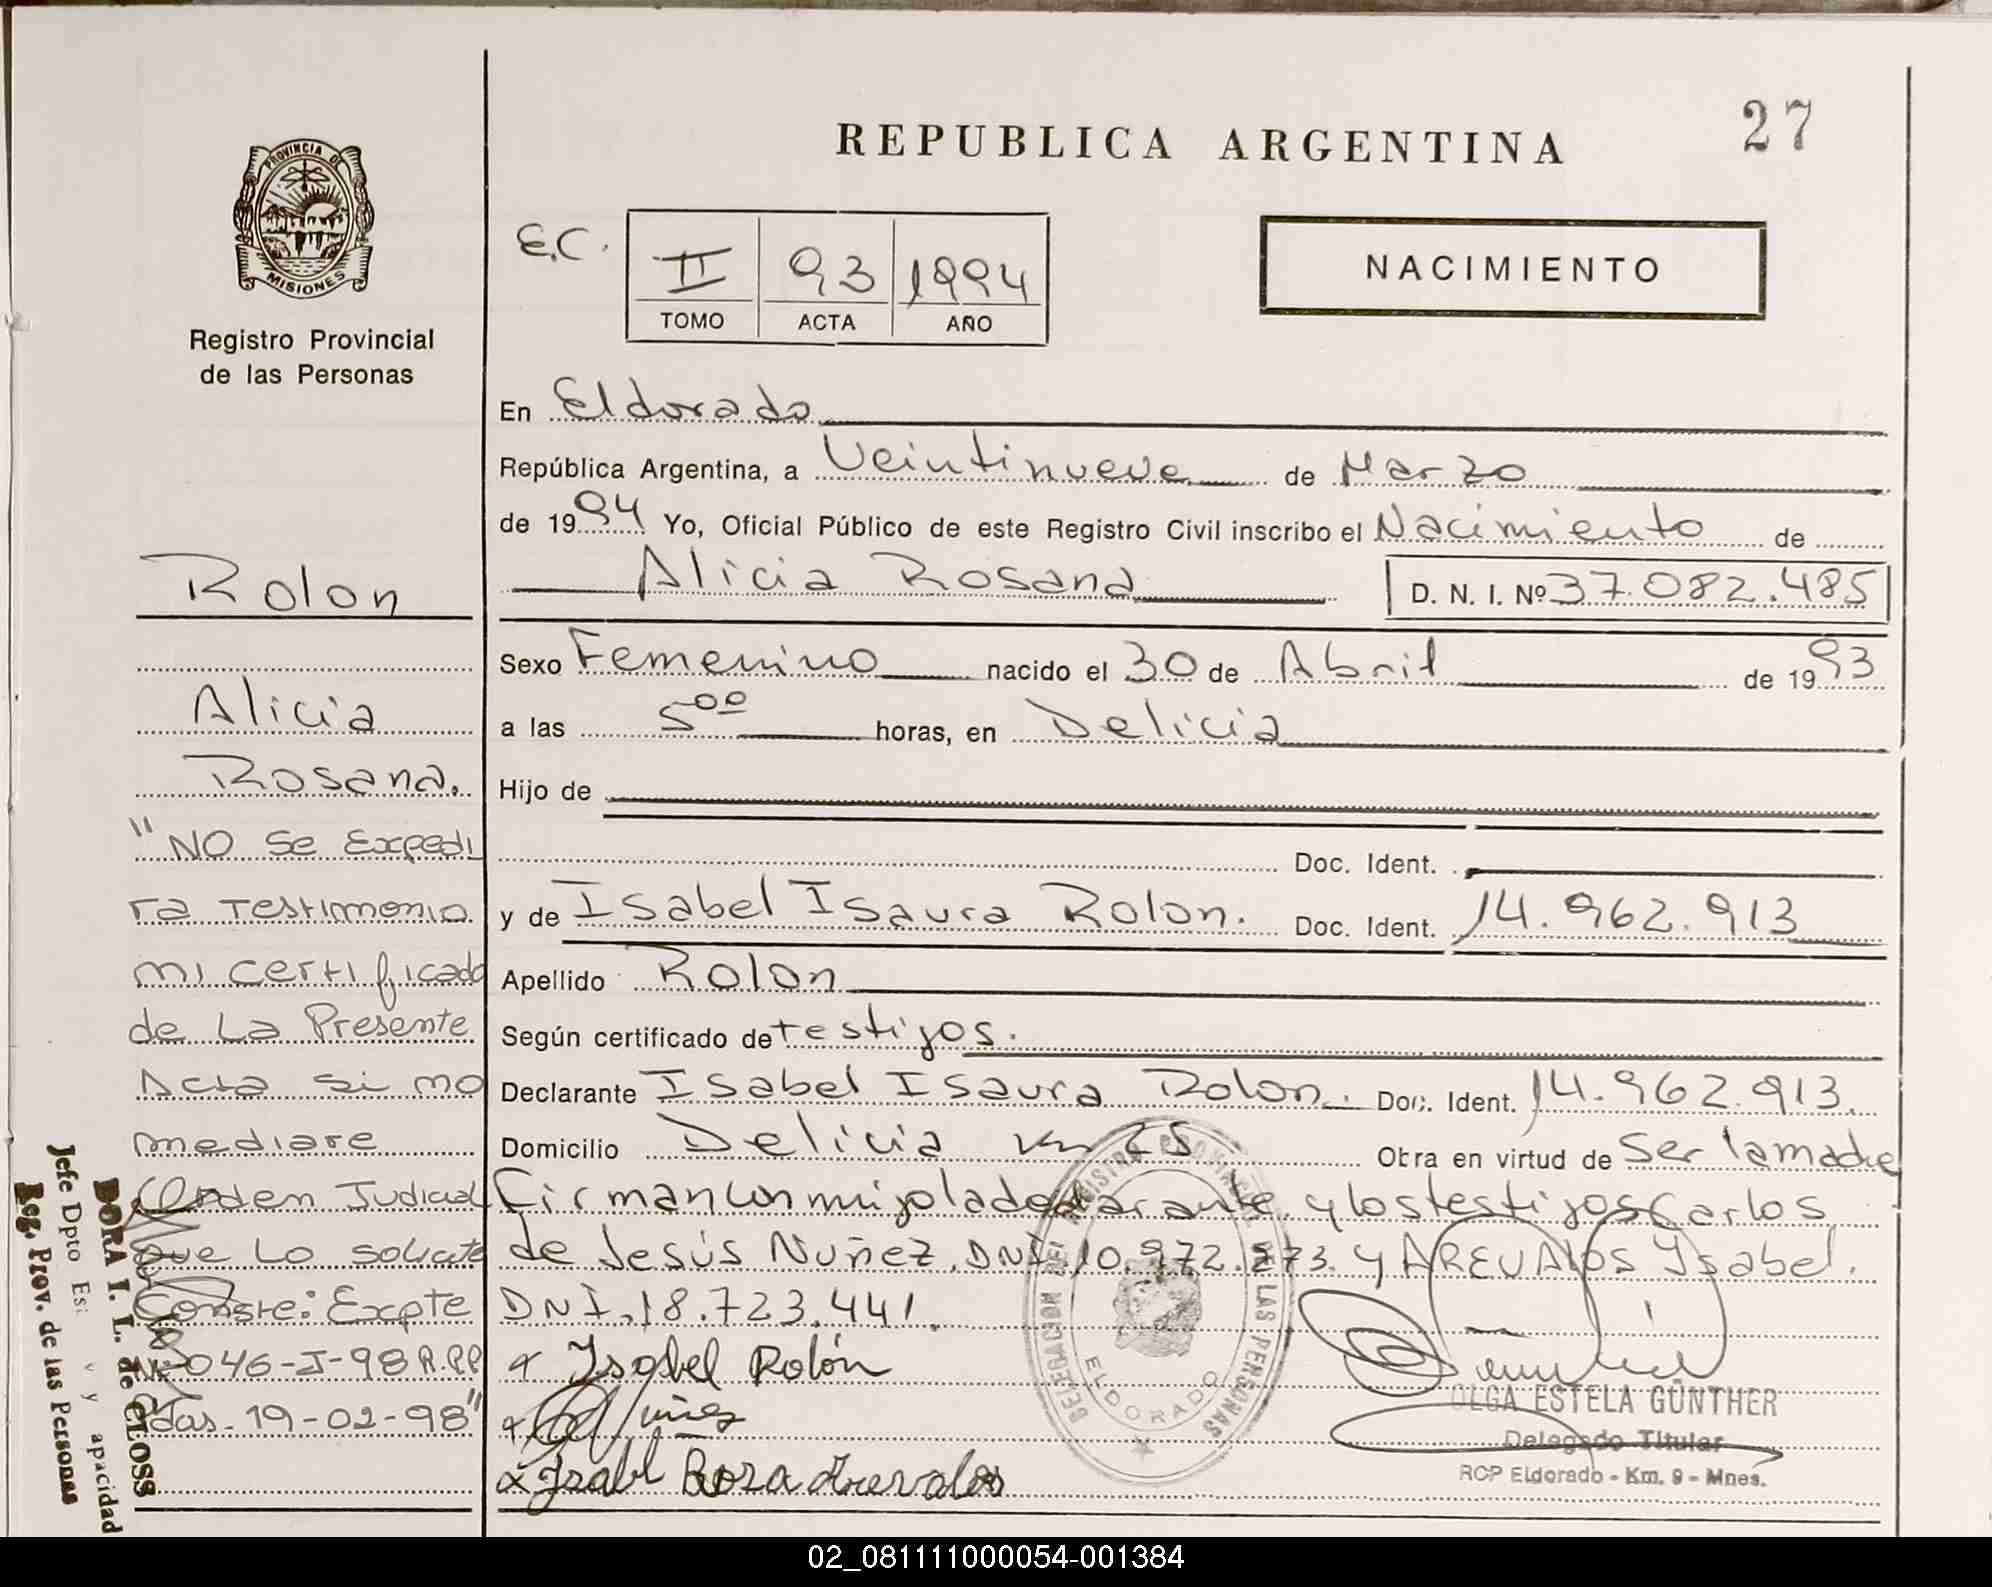 27
REPUBLICA ARGENTINA
PROVINCIA DE
MISIONES
Registro Provincial
de las Personas
E.C.
II 93 1994
TOMO ACTA AÑO
NACIMIENTO
Rolon
Alicia
Rosana.
"NO se Expedi
ra Testimonio
ni certificado
de La Presente
Acta si no
mediare
Orden Judicial
que Lo solicite
Conste: Expte
046-J-98 R.P.P
das. 19-02-98"
DORA I. L. de CLOSS
Jefe Dpto Es v y apacidad
Reg. Prov. de las Personas
En Eldorado
República Argentina, a Veintinueve de Marzo
de 1994 Yo, Oficial Público de este Registro Civil inscribo el Nacimiento de
Alicia Rosana D. N. I. Nº 37.082.485
Sexo Femenino nacido el 30 de Abril de 1993
a las 5 00 horas, en Delicia
Hijo de
Doc. Ident.
y de Isabel Isaura Rolon. Doc. Ident. 14.962.913
Apellido Rolon
Según certificado de testigos.
Declarante Isabel Isaura Rolon. Doc. Ident. 14.962.913.
Domicilio Delicia Km Obra en virtud de Ser la madre
Firman con migo la declarante y los testigos Carlos
de Jesús Nuñez, DNI. 10.972.273. y AREVALOS Ysabel.
DNI. 18.723.441.
x Ysabel Rolón
x Nuñez
x Isabel Rosa Arevalos
DELEGACION DEL REGISTRO PROVINCIAL DE LAS PERSONAS
ELDORADO
OLGA ESTELA GÜNTHER
Delegado Titular
RCP Eldorado - Km. 9 - Mnes.
02_081111000054-001384